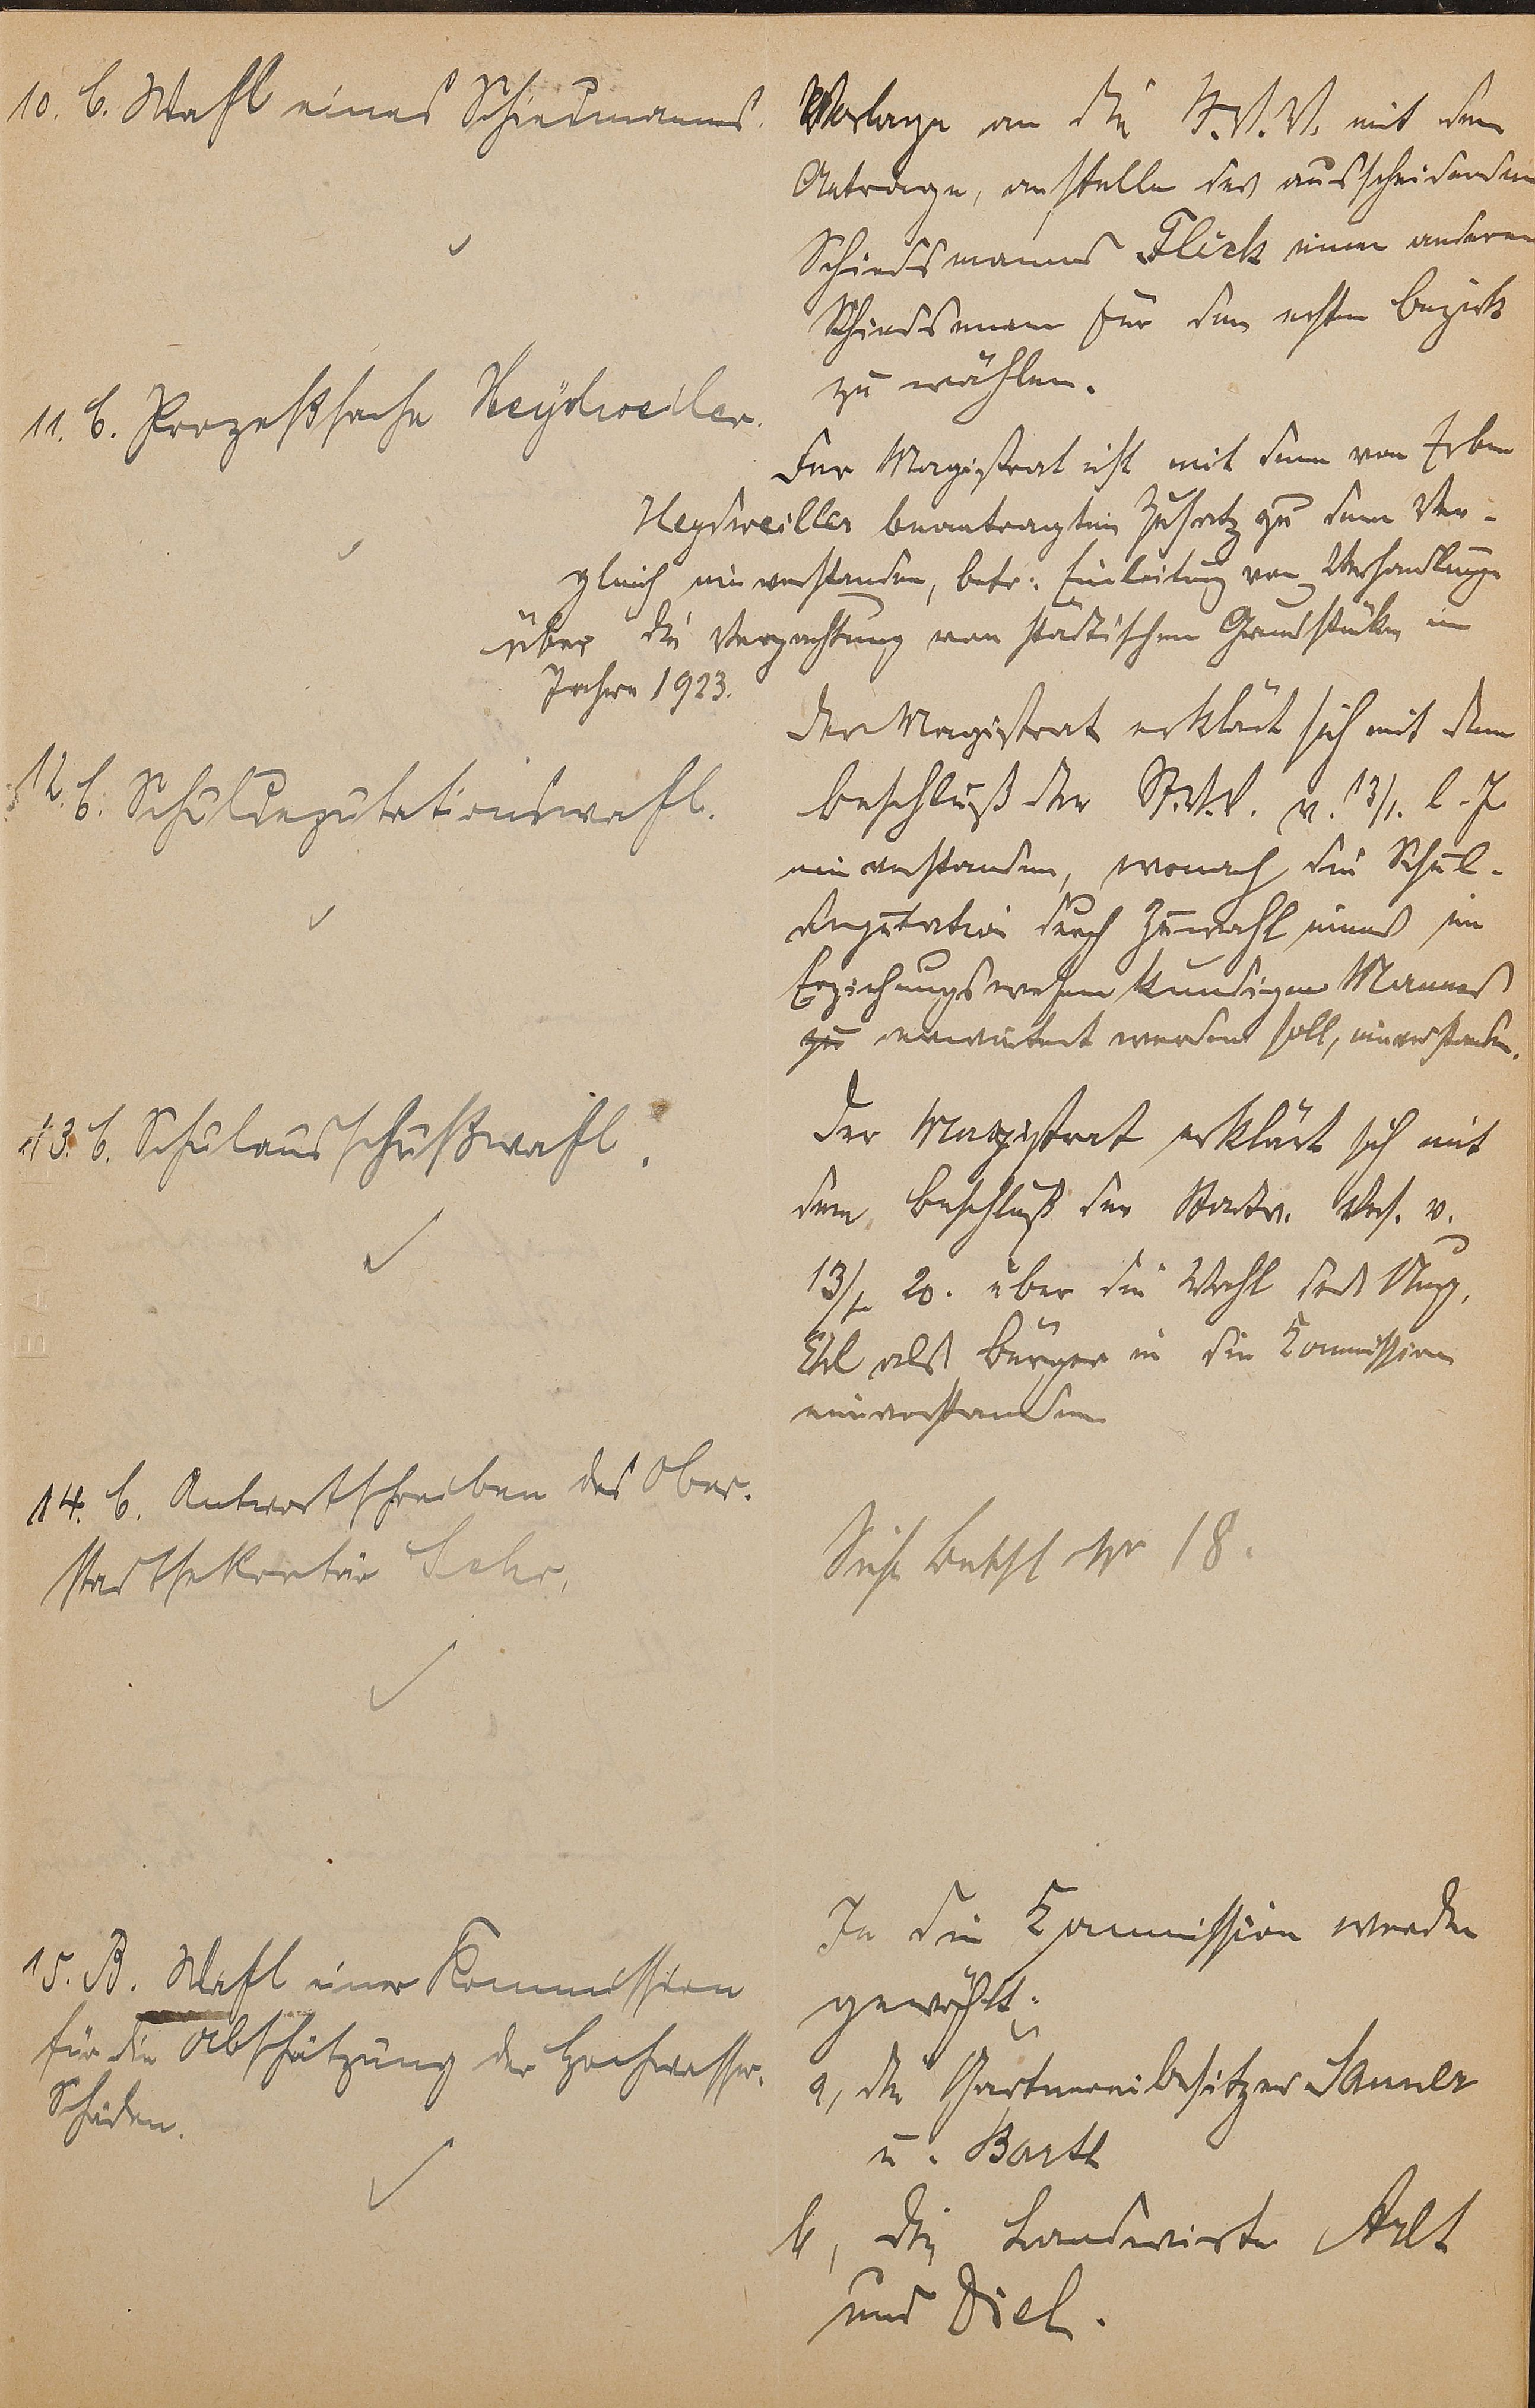 10. b. Wahl eines Schiedmannes.
Vorlage an die St.V.V. mit dem
Antrage, anstelle des ausscheidenden
Schiedsmannes Flick einen anderen
Schiedsmann für den ersten Bezirk
zu wählen.
11. b. Prozeßsache Heydweiler.
Der Magistrat ist mit dem von Erben
Heydweiller beantragten Zusatz zu dem Ver-
gleich einverstanden, betr: Einleitung von Verhandlungen
über die Verpachtung von städtischen Grundstücken im
Jahre 1923.
12. b. Schuldeputationswahl.
Der Magistrat erklärt sich mit dem
Beschluß der St.V.V. v. 13/1. l. J.
einverstanden, wonach die Schul-
deputation durch Zuwahl eines im
Erziehungswesen kundigen Mannes
zu erweitert werden soll, einverstanden.
13. b. Schulausschußwahl.
Der Magistrat erklärt sich mit
dem Beschluß der Stadtv. Vers. v.
13/1. 20. über die Wahl des
als Bürger in die Kommission
einverstanden
14. b. Antwortschreiben des Ober-
stadtsekretär Lehr.
Sieh Betchl Nr 18.
15. B. Wahl einer Kommission
für die Abschätzung der Hochwasser-
Schäden.
In die Kommission werden
gewählt:
a, die Gärtnereibesitzer Sauner
u. Barth
b, die Landwirte Arlt
und Diel.